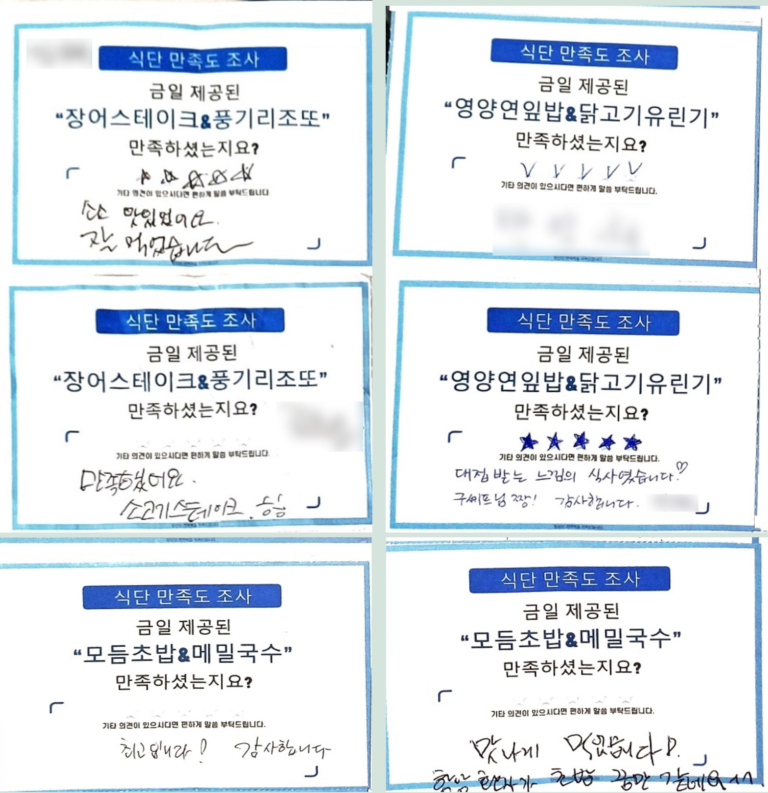 식단 만족도 조사
금일 제공된
“장어스테이크&풍기리조또”
만족하셨는지요?
기타 의견이 있으시다면 편하게 말씀 부탁드립니다
소소 맛있었어요.
잘 먹었습니다
식단 만족도 조사
금일 제공된
“영양연잎밥&닭고기유린기”
만족하셨는지요?
기타 의견이 있으시다면 편하게 말씀 부탁드립니다.
식단 만족도 조사
금일 제공된
“장어스테이크&풍기리조또”
만족하셨는지요?
기타 의견이 있으시다면 편하게 말씀 부탁드립니다.
만족했어요.
소고기스테이크.
식단 만족도 조사
금일 제공된
“영양연잎밥&닭고기유린기”
만족하셨는지요?
기타 의견이 있으시다면 편하게 말씀 부탁드립니다.
대접 받는 느낌의 식사였습니다.♡
구셰프님 짱! 감사합니다.
식단 만족도 조사
금일 제공된
“모듬초밥&메밀국수”
만족하셨는지요?
기타 의견이 있으시다면 편하게 말씀 부탁드립니다.
최고입니다! 감사합니다
식단 만족도 조사
금일 제공된
“모듬초밥&메밀국수”
만족하셨는지요?
기타 의견이 있으시다면 편하게 말씀 부탁드립니다.
맛나게 먹었습니다!
초밥